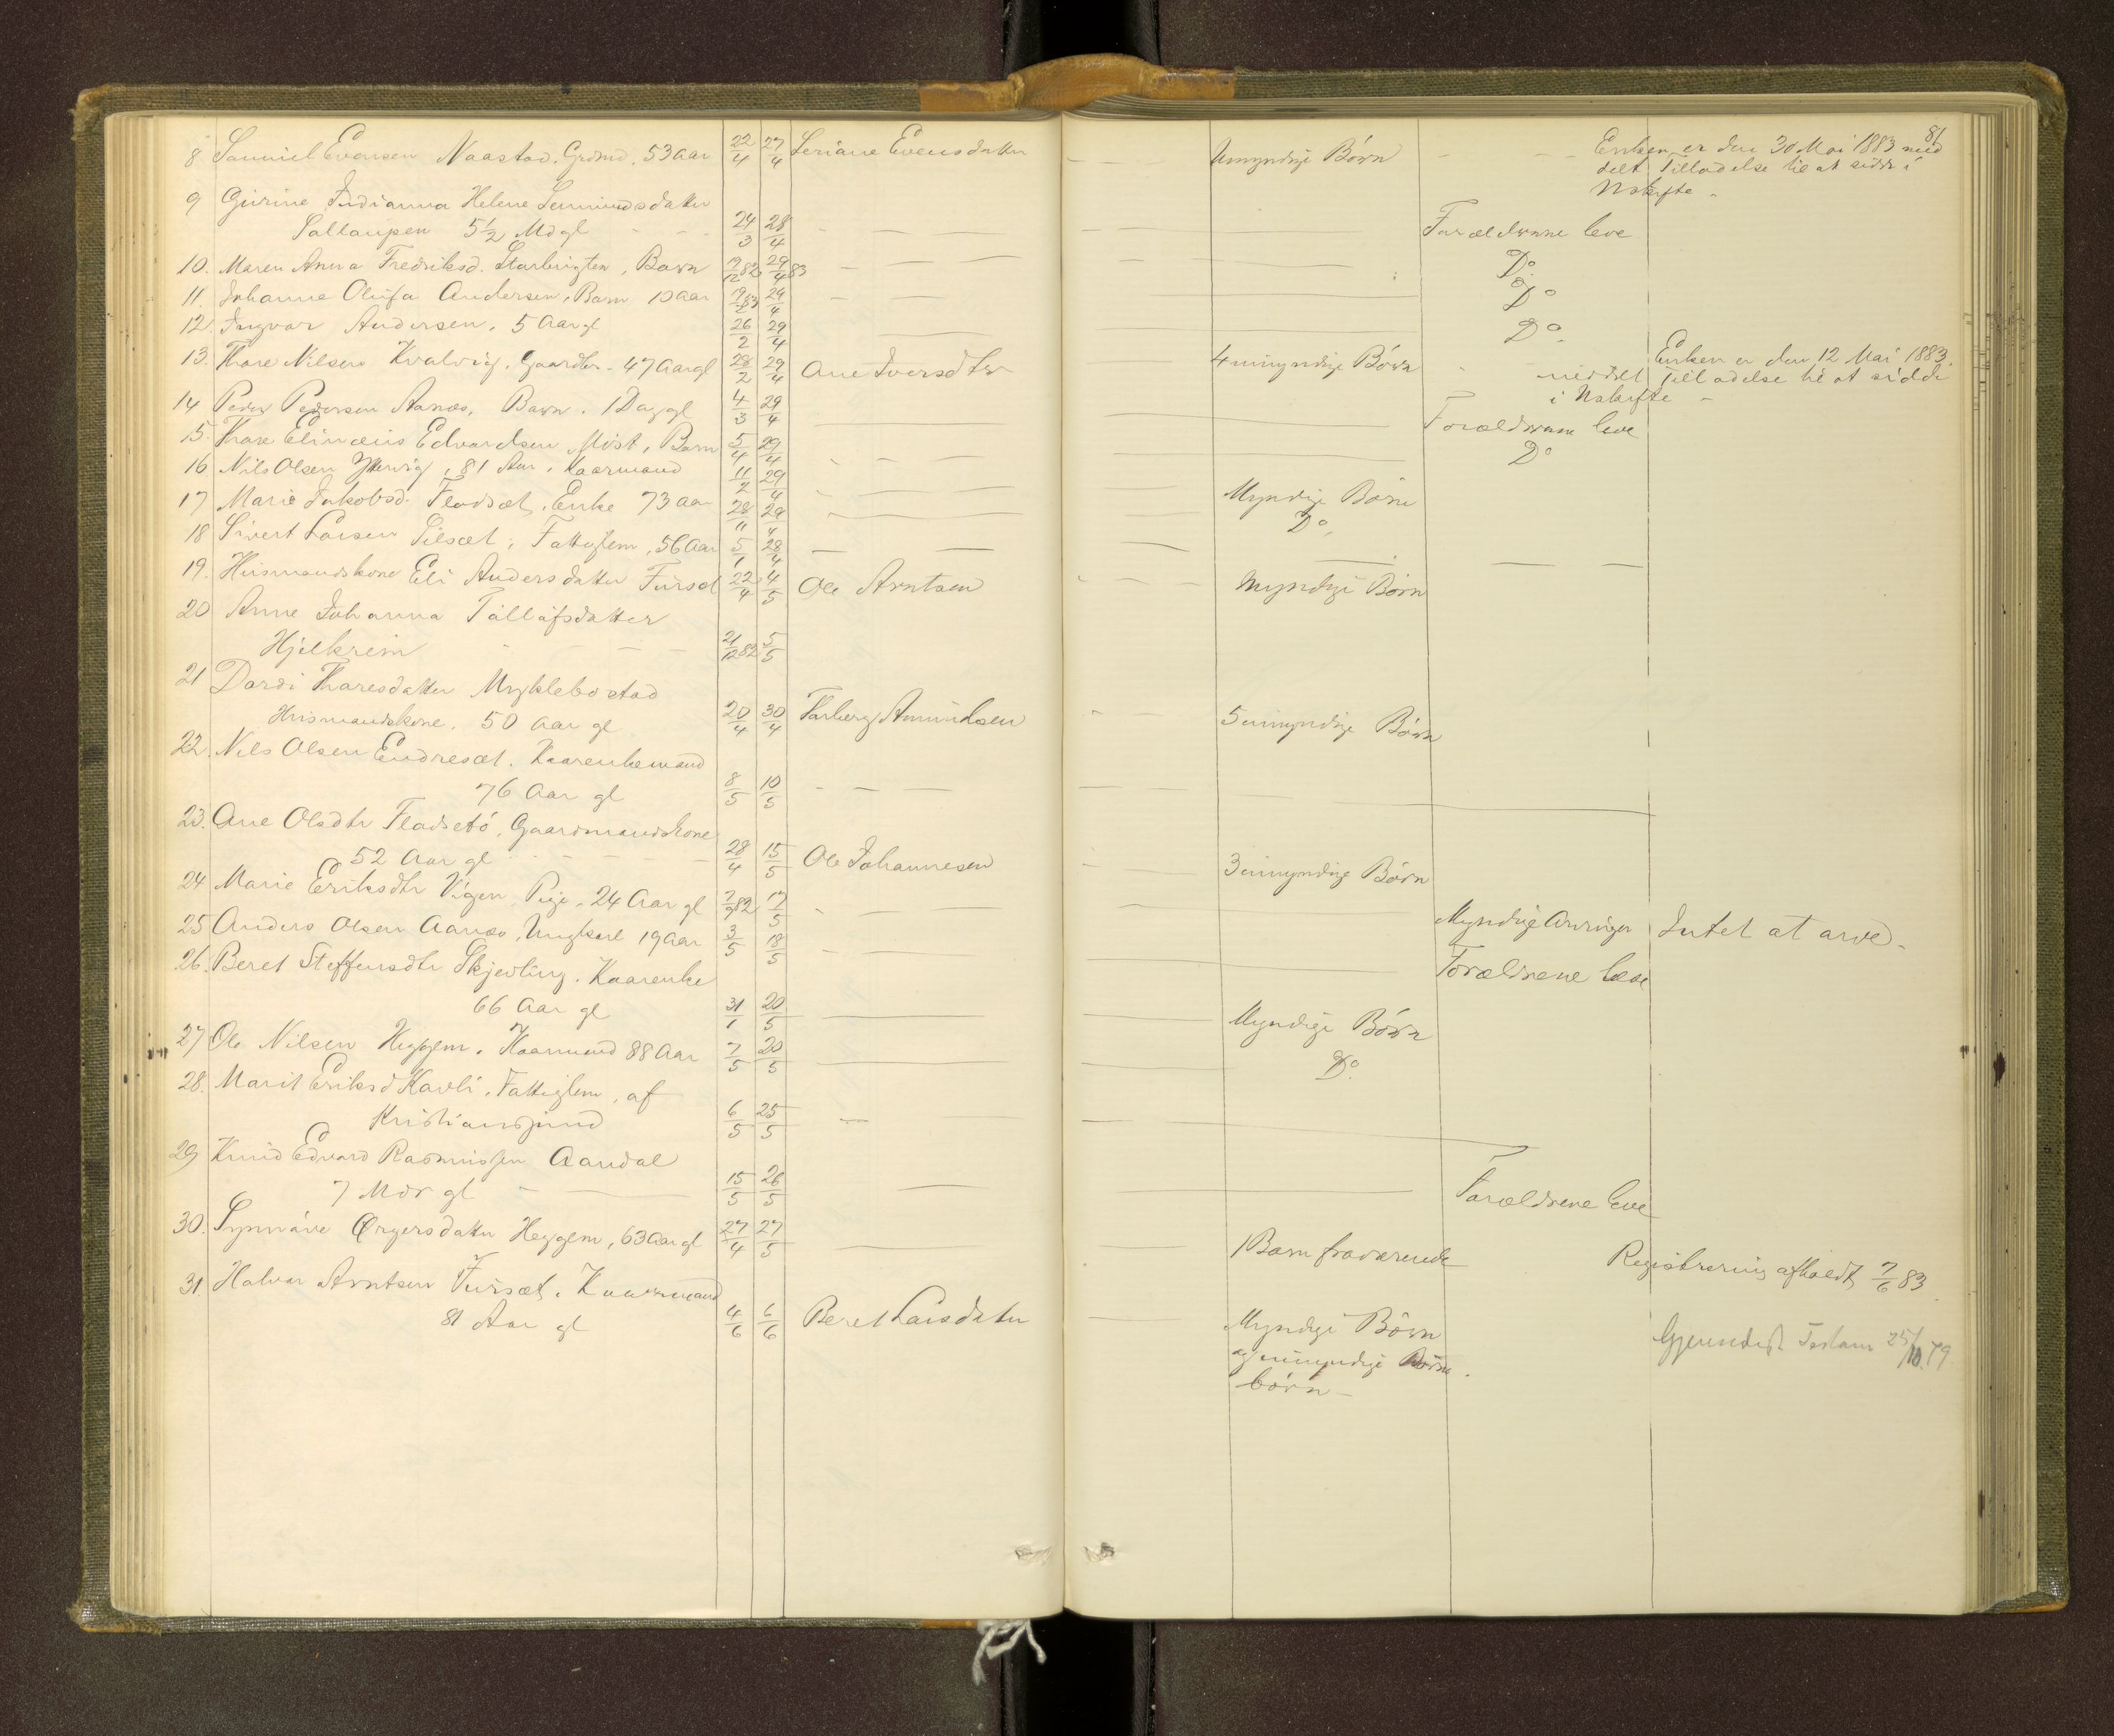 81
8 Samuel Evensen Naastad. Grdmd. 53 Aar 22/4 27/4 Seriane Evensdatter Umyndige Børn Enken er den 30 Mai 1883 med
delt Tilladelse til at sidde i
Uskifte.
9 Gurine Indianna Helene
5½ Mdgl 24/3 28/4 Forældrene leve
10. Maren Anna Fredriksd. Barn 19/12 82 29/4 83 Do
11. Johanne Olufa Andersen, Barn 10 Aar 29/4 Do
12. Ingvar Andersen, 5 Aar gl 26/2 29/4 Do
13. Thore Nilsen Kvalvig, Gaardbr. 47 Aar gl 28/2 29/4 Ane Iversdtr 4 umyndige Børn Enken er den 12 Mai 1883
meddelt Tilladelse til at sidde
i Uskifte
14 Peder Pedersen Aanæs, Barn. 1 Dag gl 4/3 29/4 Forældrene leve
15. Thore Edvardsen Barn 5/4 29/4 Do
16 Nils Olsen 81 Aar, Kaarmand 11/2 29/4 Myndige Børn
17 Marie Jakobsd. Fladsæt, Enke 73 Aar 28/11 29/4 Do
18 Sivert Larsen Silsæt, Fattiglem, 56 Aar 5/1 28/4
19. Husmandskone Eli Andersdatter Fursæt 22/4 4/5 Ole Arntsen Myndige Børn
20 Anne Johanna Tollafsdatter
Hjelkrem 21/12 82 5/5
21 Dordi Thoresdatter Myklebostad
Husmandskone. 50 Aar gl 20/4 30/4 Torberg Amundsen 5 umyndige Børn
22. Nils Olsen Endresæt. Kaarenkemand
76 Aar gl 8/5 10/5
23. Ane Olsdtr Fladsetø, Gaardmandskone
52 Aar gl 28/4 15/5 Ole Johannesen 3 umyndige Børn
24 Marie Eriksdtr Vigen Pige. 24 Aar gl 7/9 82 17/5 Myndige Arvinger Intet at arve.
25 Anders Olsen Aanæs, Ungkarl 19 Aar 3/5 18/5 Forældrene leve
26. Beret Steffensdtr Skjevling. Kaarenke
66 Aar gl 31/1 20/5 Myndige Børn
27 Ole Nilsen Heggem. Kaarmand 88 Aar 7/5 20/5 Do.
28. Marit Eriksd Kavli, Fattiglem, af
Kristiansund 6/5 25/5
29 Knud Edvard Rasmussen Aandal
7 Mdr gl 15/5 26/5 Forældrene leve
30. Synnøve Heggem, 63 Aar gl 27/4 27/5 1 Barn fraværende Registrering afholdt 7/6 83.
31. Halvor Arntsen Fursæt. Kaarmand
81 Aar gl 4/6 6/6 Beret Larsdatter Myndige Børn
og umyndige Børne
børn Gjensidigt Testam 25/10.79